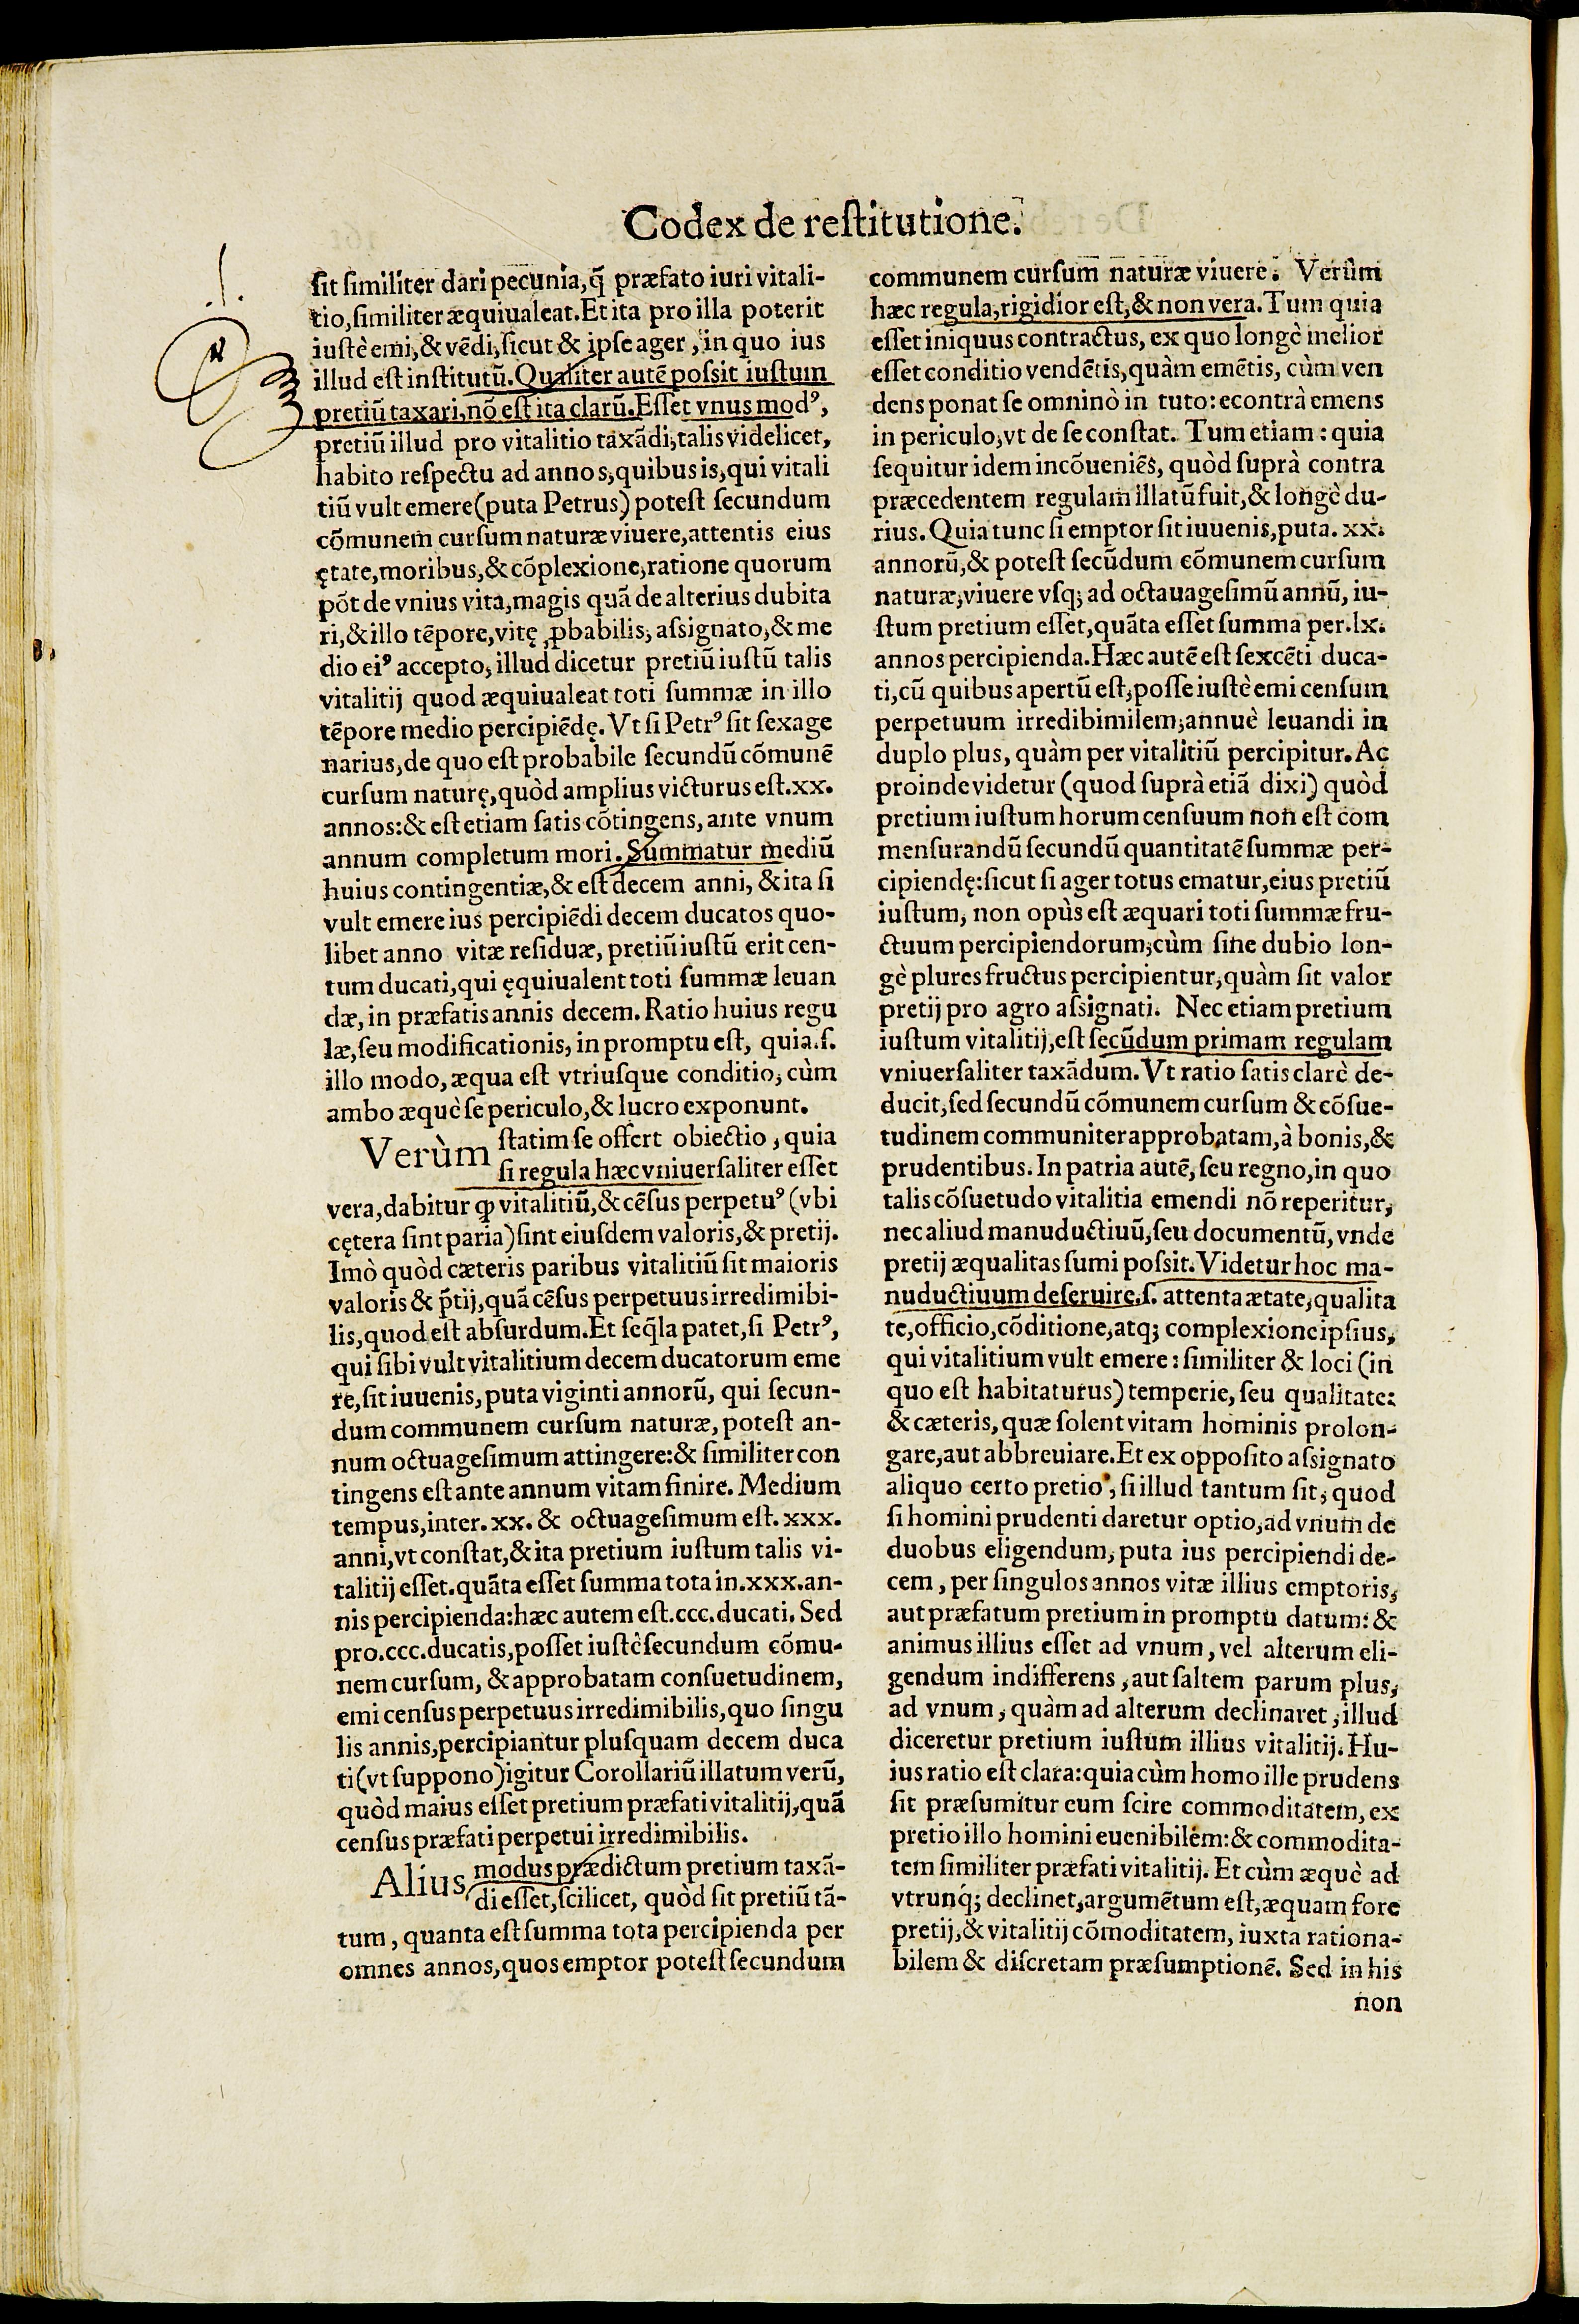 Codex de reſtitutione.
.1.
ſit ſimiliter dari pecunia, q̃ præfato iuri vitali-
tio, ſimiliter æquiualeat. Et ita pro illa poterit
iuſtè emi, & vẽdi, ſicut & ipſe ager, in quo ius
illud eſt inſtitutũ. Qualiter autẽ poſsit iuſtum
pretiũ taxari, nõ eſt ita clarũ. Eſſet vnus modꝰ,
pretiũ illud pro vitalitio taxãdi, talis videlicet,
habito reſpectu ad annos, quibus is, qui vitali
tiũ vult emere (puta Petrus) poteſt ſecundum
cõmunem curſum naturæ viuere, attentis eius
ętate, moribus, & cõplexione, ratione quorum
põt de vnius vita, magis quã de alterius dubita
ri, & illo tẽpore, vitę ꝓbabilis, aſsignato, & me
dio eiꝰ accepto, illud dicetur pretiũ iuſtũ talis
vitalitij quod æquiualeat toti ſummæ in illo
tẽpore medio percipiẽdę. Vt ſi Petrꝰ ſit ſexage
narius, de quo eſt probabile ſecundũ cõmunẽ
curſum naturę, quòd amplius victurus eſt. xx.
annos: & eſt etiam ſatis cõtingens, ante vnum
annum completum mori. Summatur mediũ
huius contingentiæ, & eſt decem anni, & ita ſi
vult emere ius percipiẽdi decem ducatos quo-
libet anno vitæ reſiduæ, pretiũ iuſtũ erit cen-
tum ducati, qui ęquiualent toti ſummæ leuan
dæ, in præfatis annis decem. Ratio huius regu
læ, ſeu modificationis, in promptu eſt, quia. ſ.
illo modo, æqua eſt vtriuſque conditio, cùm
ambo æquè ſe periculo, & lucro exponunt.
Verùm ſtatim ſe offert obiectio, quia
ſi regula hæc vniuerſaliter eſſet
vera, dabitur ꝙ vitalitiũ, & cẽſus perpetuꝰ (vbi
cętera ſint paria) ſint eiuſdem valoris, & pretij.
Imò quòd cæteris paribus vitalitiũ ſit maioris
valoris & p̃tij, quã cẽſus perpetuus irredimibi-
lis, quod eſt abſurdum. Et ſeq̃la patet, ſi Petrꝰ,
qui ſibi vult vitalitium decem ducatorum eme
re, ſit iuuenis, puta viginti annorũ, qui ſecun-
dum communem curſum naturæ, poteſt an-
num octuageſimum attingere: & ſimiliter con
tingens eſt ante annum vitam finire. Medium
tempus, inter. xx. & octuageſimum eſt. xxx.
anni, vt conſtat, & ita pretium iuſtum talis vi-
talitij eſſet. quãta eſſet ſumma tota in. xxx. an-
nis percipienda: hæc autem eſt. ccc. ducati. Sed
pro. ccc. ducatis, poſſet iuſtè ſecundum cõmu-
nem curſum, & approbatam conſuetudinem,
emi cenſus perpetuus irredimibilis, quo ſingu
lis annis, percipiantur pluſquam decem duca
ti (vt ſuppono) igitur Corollariũ illatum verũ,
quòd maius eſſet pretium præfati vitalitij, quã
cenſus præfati perpetui irredimibilis.
Alius modus prædictum pretium taxã-
di eſſet, ſcilicet, quòd ſit pretiũ tã-
tum, quanta eſt ſumma tota percipienda per
omnes annos, quos emptor poteſt ſecundum
communem curſum naturæ viuere. Verùm
hæc regula, rigidior eſt, & non vera. Tum quia
eſſet iniquus contractus, ex quo longè melior
eſſet conditio vendẽtis, quàm emẽtis, cùm ven
dens ponat ſe omninò in tuto: econtrà emens
in periculo, vt de ſe conſtat. Tum etiam: quia
ſequitur idem incõueniẽs, quòd ſuprà contra
præcedentem regulam illatũ fuit, & longè du-
rius. Quia tunc ſi emptor ſit iuuenis, puta. xx.
annorũ, & poteſt ſecũdum cõmunem curſum
naturæ, viuere vſq; ad octauageſimũ annũ, iu-
ſtum pretium eſſet, quãta eſſet ſumma per. lx.
annos percipienda. Hæc autẽ eſt ſexcẽti duca-
ti, cũ quibus apertũ eſt, poſſe iuſtè emi cenſum
perpetuum irredibimilem, annuè leuandi in
duplo plus, quàm per vitalitiũ percipitur. Ac
proinde videtur (quod ſuprà etiã dixi) quòd
pretium iuſtum horum cenſuum non eſt com
menſurandũ ſecundũ quantitatẽ ſummæ per-
cipiendę: ſicut ſi ager totus ematur, eius pretiũ
iuſtum, non opùs eſt æquari toti ſummæ fru-
ctuum percipiendorum, cùm ſine dubio lon-
gè plures fructus percipientur, quàm ſit valor
pretij pro agro aſsignati. Nec etiam pretium
iuſtum vitalitij, eſt ſecũdum primam regulam
vniuerſaliter taxãdum. Vt ratio ſatis clarè de-
ducit, ſed ſecundũ cõmunem curſum & cõſue-
tudinem communiter approbatam, à bonis, &
prudentibus. In patria autẽ, ſeu regno, in quo
talis cõſuetudo vitalitia emendi nõ reperitur,
nec aliud manuductiuũ, ſeu documentũ, vnde
pretij æqualitas ſumi poſsit. Videtur hoc ma-
nuductiuum deſeruire. ſ. attenta ætate, qualita
te, officio, cõditione, atq; complexione ipſius,
qui vitalitium vult emere: ſimiliter & loci (in
quo eſt habitaturus) temperie, ſeu qualitate:
& cæteris, quæ ſolent vitam hominis prolon-
gare, aut abbreuiare. Et ex oppoſito aſsignato
aliquo certo pretio, ſi illud tantum ſit, quod
ſi homini prudenti daretur optio, ad vnum de
duobus eligendum, puta ius percipiendi de-
cem, per ſingulos annos vitæ illius emptoris,
aut præfatum pretium in promptu datum: &
animus illius eſſet ad vnum, vel alterum eli-
gendum indifferens, aut ſaltem parum plus,
ad vnum, quàm ad alterum declinaret, illud
diceretur pretium iuſtum illius vitalitij. Hu-
ius ratio eſt clara: quia cùm homo ille prudens
ſit præſumitur eum ſcire commoditatem, ex
pretio illo homini euenibilem: & commodita-
tem ſimiliter præfati vitalitij. Et cùm æquè ad
vtrunq́; declinet, argumẽtum eſt, æquam fore
pretij, & vitalitij cõmoditatem, iuxta rationa-
bilem & diſcretam præſumptionẽ. Sed in his
non